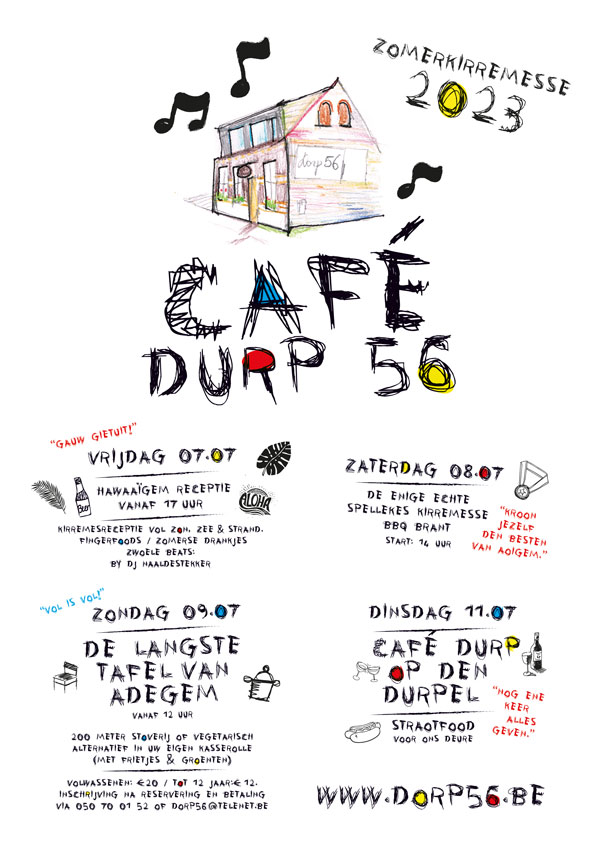 ZOMERKIRREMESSE
2023
dorp 56
CAFÉ
DURP 56
"GAUW GIETUIT!"
VRIJDAG 07.07
HAWAAÏGEM RECEPTIE
VANAF 17 UUR
Beer
ALOHA
KIRREMESRECEPTIE VOL ZON, ZEE & STRAND.
FINGERFOODS / ZOMERSE DRANKJES
ZWOELE BEATS:
BY DJ HAALDESTEKKER
ZATERDAG 08.07
DE ENIGE ECHTE
SPELLEKES KIRREMESSE
BBQ BRANT
START: 14 UUR
"KROON
JEZELF
DEN BESTEN
VAN AOIGEM."
"VOL IS VOL!"
ZONDAG 09.07
DE LANGSTE
TAFEL VAN
ADEGEM
VANAF 12 UUR
200 METER STOVERIJ OF VEGETARISCH
ALTERNATIEF IN UW EIGEN KASSEROLLE
(MET FRIETJES & GROENTEN)
VOLWASSENEN: €20 / TOT 12 JAAR: € 12.
INSCHRIJVING NA RESERVERING EN BETALING
VIA 050 70 01 52 OF DORP56@TELENET.BE
DINSDAG 11.07
CAFÉ DURP
OP DEN
DURPEL
"NOG ENE
KEER
ALLES
GEVEN."
STRAOTFOOD
VOOR ONS DEURE
WWW.DORP56.BE